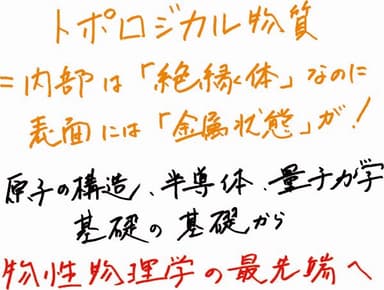 トポロジカル物質
=内部は「絶縁体」なのに
表面には「金属状態」が!
原子の構造、半導体、量子力学
基礎の基礎から
物性物理学の最先端へ